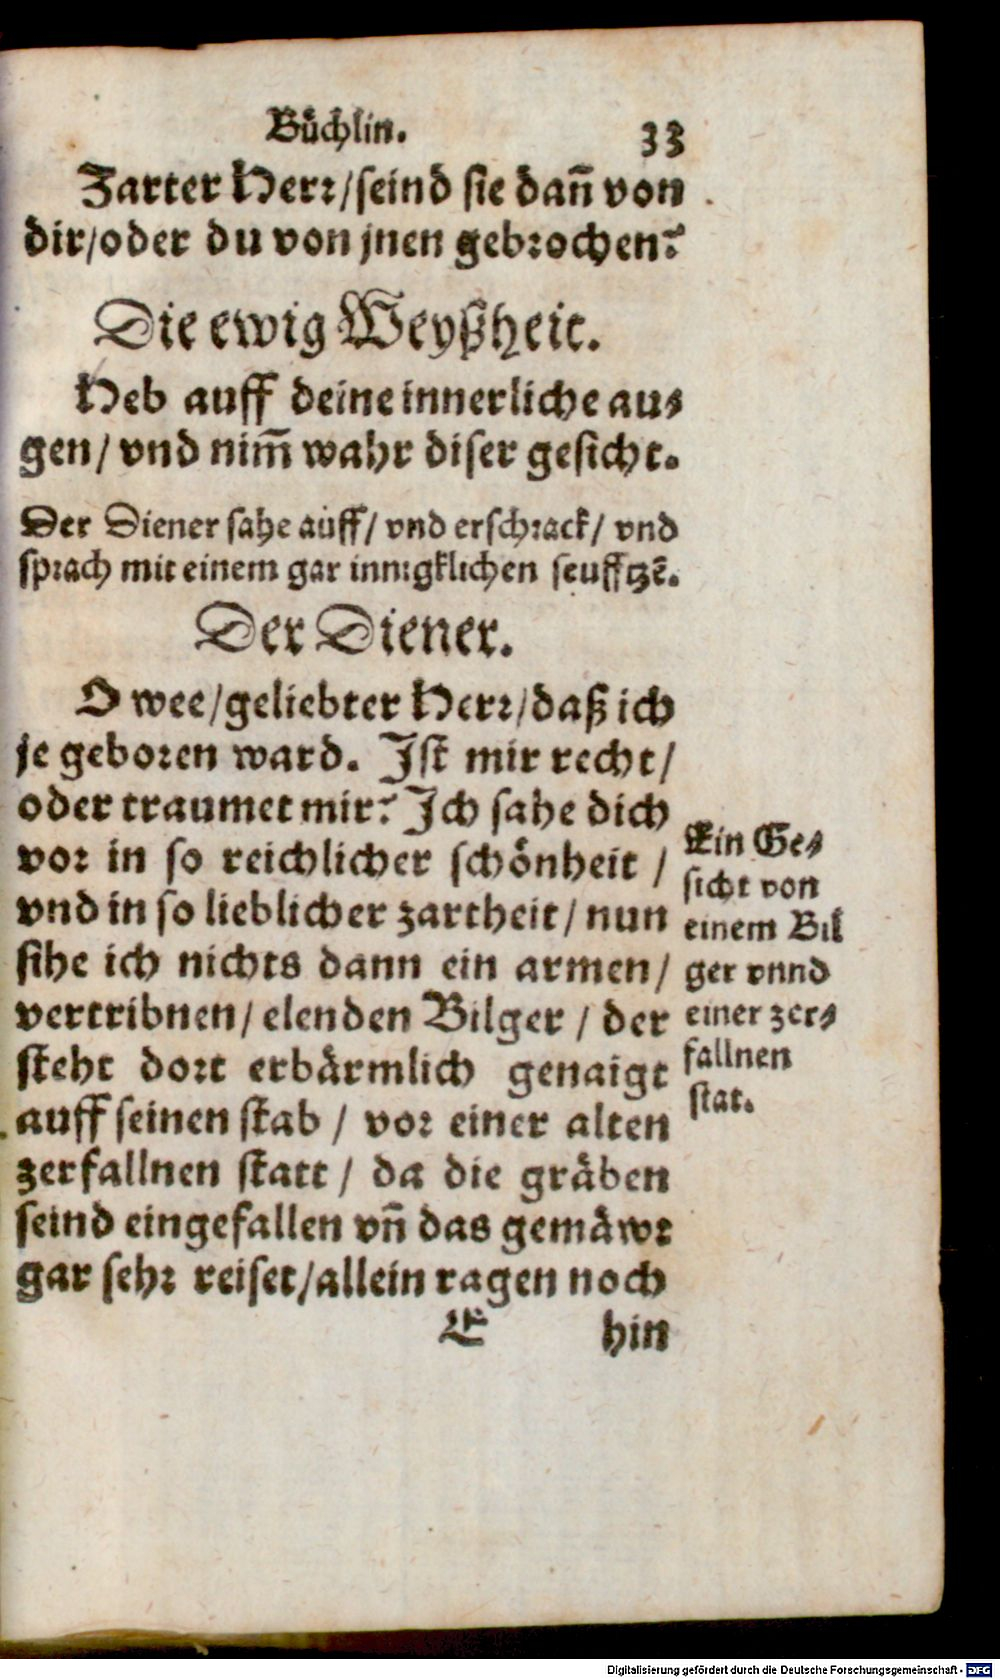 Büchlin. 33
Zarter Herr/seind sie dañ von
dir/oder du von jnen gebrochen?
Die ewig Weyßheit.
Heb auff deine innerliche au-
gen/ vnd nim̃ wahr diser gesicht.
Der Diener sahe auff/ vnd erschrack/ vnd
sprach mit einem gar innigklichen seufftzẽ.
Der Diener.
O wee/geliebter Herr/daß ich
je geboren ward. Ist mir recht/
oder traumet mir? Ich sahe dich
vor in so reichlicher schönheit /
vnd in so lieblicher zartheit/ nun
sihe ich nichts dann ein armen/
vertribnen/ elenden Bilger / der
steht dort erbärmlich genaigt
auff seinen stab / vor einer alten
zerfallnen statt / da die gräben
seind eingefallen vñ das gemäwr
gar sehr reiset/allein ragen noch
E hin
Ein Ge-
sicht von
einem Bil
ger vnnd
einer zer-
fallnen
stat.
Digitalisierung gefördert durch die Deutsche Forschungsgemeinschaft - DFG